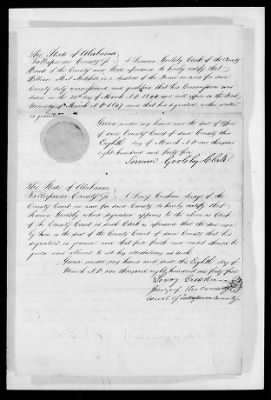 The State of Alabama
Tallapoosa County } I Simeon Goolsby Clerk of the County
Court of the County and State aforesaid do hereby certify that
William M. A. Mitchell is a Justice of the Peace in and for said
County duly commissioned and qualified that his Commission was
dated on the day of March A D 1844 and will expire on the first
March A D 1847 and that his signature within written
is genuine
Given under my hand and the seal of office
of said County Court of said County this
Eighth day of March A D one thousand
eight hundred and forty five
Simeon Goolsby Clerk
The State of Alabama
Tallapoosa County } I Leroy Judge of the
County Court in and for said County do hereby certify that
Simeon Goolsby whose signature appears to the above as Clerk
of the County Court is such Clerk as aforesaid that the seal
by him is the seal of the County Court of said County that his
signature is genuine and that full faith and credit should be
given and allowed to all his attestations as such
Given under my hand and seal this Eighth day of
March A D one thousand eight hundred and forty five
Leroy
Judge of the County
Court of Tallapoosa County